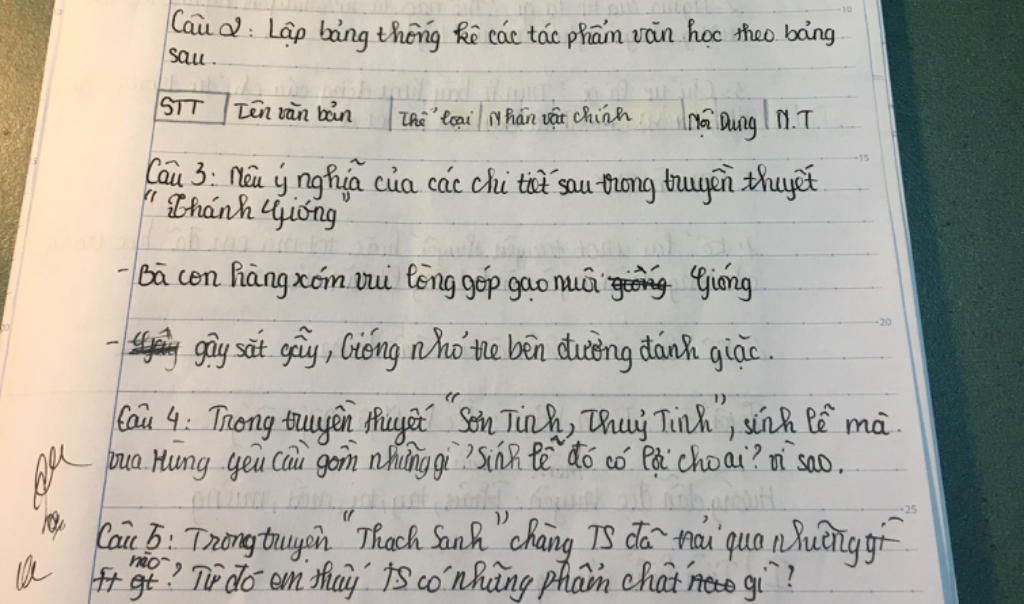 Câu 2: Lập bảng thống kê các tác phẩm văn học theo bảng
sau.
STT Tên văn bản Thể loại Nhân vật chính Nội Dung N.T
Câu 3: Nêu ý nghĩa của các chi tiết sau trong truyền thuyết
"Thánh Gióng"
- Bà con hàng xóm vui lòng góp gạo nuôi Gióng
- gậy sắt gẫy, Gióng nhổ tre bên đường đánh giặc.
Câu 4: Trong truyền thuyết "Sơn Tinh, Thuỷ Tinh", sính lễ mà
vua Hùng yêu cầu gồm những gì? Sính lễ đó có lợi cho ai? vì sao.
Câu 5: Trong truyện "Thạch Sanh" chàng TS đã trải qua những gì
? Từ đó em thấy TS có những phẩm chất gì?